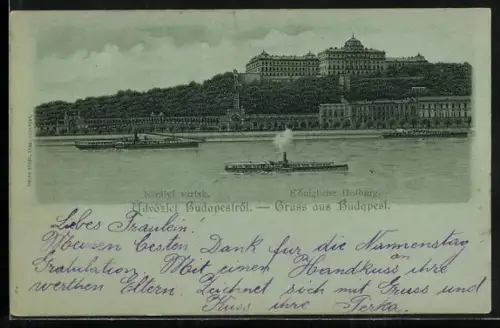 Királyi várlak.
Königliche Hofburg.
Üdvözlet Budapestről. — Gruss aus Budapest.
Lebes Fräulein!
Meinen besten Dank fur die Nammenstag
Gratulation. Mit einem Handkuss an ihre
werthen Eltern. Zeichnet sich mit Gruss und
Kuss ihre Terka.